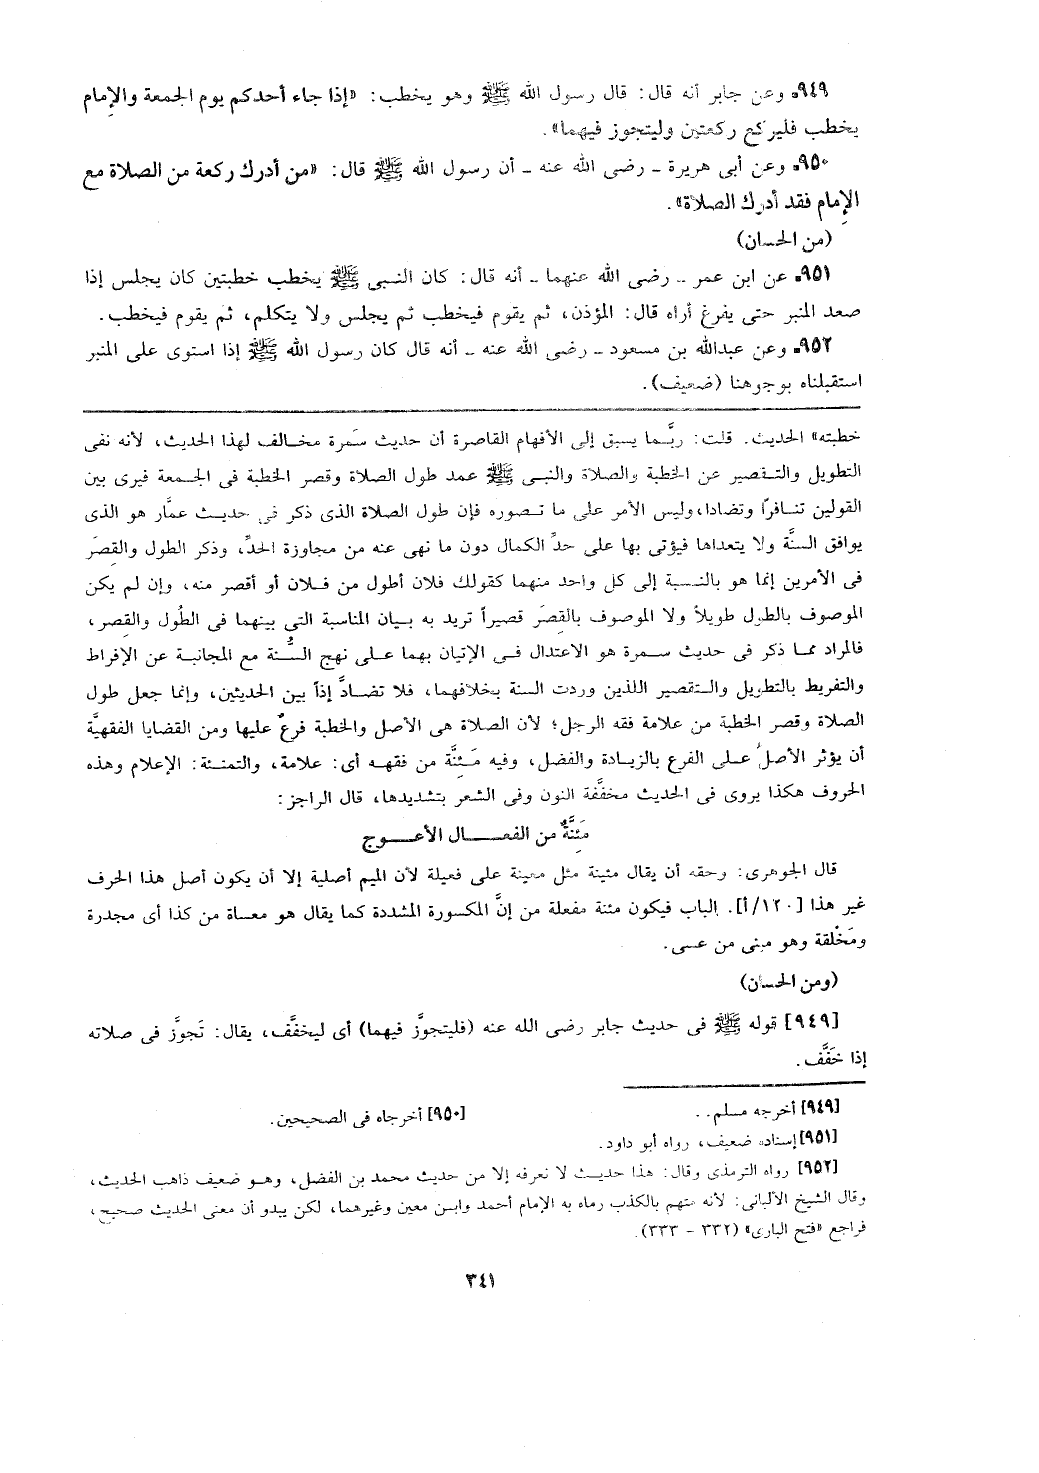 ٩٤٩. وعن جابر أنه قال: قال رسول الله ﷺ وهو يخطب: «إذا جاء أحدكم يوم الجمعة والإمام
يخطب فليركع ركعتين وليتجوز فيهما».
٩٥٠. وعن أبى هريرة ـ رضى الله عنه ـ أن رسول الله ﷺ قال: «من أدرك ركعة من الصلاة مع
الإمام فقد أدرك الصلاة».
(من الحسان)
٩٥١. عن ابن عمر ـ رضى الله عنهما ـ أنه قال: كان النبى ﷺ يخطب خطبتين كان يجلس إذا
صعد المنبر حتى يفرغ أراه قال: المؤذن، ثم يقوم فيخطب ثم يجلس ولا يتكلم، ثم يقوم فيخطب.
٩٥٢. وعن عبدالله بن مسعود ـ رضى الله عنه ـ أنه قال كان رسول الله ﷺ إذا استوى على المنبر
استقبلناه بوجوهنا (ضعيف).
خطبته» الحديث. قلت: ربَّما يسبق إلى الأفهام القاصرة أن حديث سَمرة مخالف لهذا الحديث، لأنه نفى
التطويل والتقصير عن الخطبة والصلاة والنبى ﷺ عمد طول الصلاة وقصر الخطبة فى الجمعة فيرى بين
القولين تنافراً وتضادا، وليس الأمر على ما تصوره فإن طول الصلاة الذى ذكر فى حديث عمَّار هو الذى
يوافق السنَّة ولا يتعداها فيؤتى بها على حدِّ الكمال دون ما نهى عنه من مجاوزة الحدِّ، وذكر الطول والقِصَر
فى الأمرين إنما هو بالنسبة إلى كل واحد منهما كقولك فلان أطول من فلان أو أقصر منه، وإن لم يكن
الموصوف بالطول طويلاً ولا الموصوف بالقِصَر قصيراً تريد به بيان المناسبة التى بينهما فى الطُول والقِصر،
فالمراد مما ذكر فى حديث سمرة هو الاعتدال فى الإتيان بهما على نهج السُّنة مع المجانبة عن الإفراط
والتفريط بالتطويل والتقصير اللذين وردت السنة بخلافهما، فلا تضادَّ إذاً بين الحديثين، وإنما جعل طول
الصلاة وقصر الخطبة من علامة فقه الرجل؛ لأن الصلاة هى الأصل والخطبة فرعٌ عليها ومن القضايا الفقهيَّة
أن يؤثر الأصلُ على الفرع بالزيادة والفضل، وفيه مَئِنَّة من فقهه أى: علامة، والتمئنة: الإعلام وهذه
الحروف هكذا يروى فى الحديث مخففَّة النون وفى الشعر بتشديدها، قال الراجز:
مَئِنَّةٌ من الفعـــال الأعـــوج
قال الجوهرى: وحقه أن يقال مئينة مثل معينة على فعيلة لأن الميم أصلية إلا أن يكون أصل هذا الحرف
غير هذا [١٢٠/أ]. الباب فيكون مئنة مفعلة من إنَّ المكسورة المشددة كما يقال هو معساة من كذا أى مجدرة
ومَخْلقة وهو مبنى من عسى.
(ومن الحسان)
[٩٤٩] قوله ﷺ فى حديث جابر رضى الله عنه (فليتجوَّز فيهما) أى ليخفَّف، يقال: تَجوَّز فى صلاته
إذا خَفَّف.
[٩٤٩] أخرجه مسلم.. [٩٥٠] أخرجاه فى الصحيحين.
[٩٥١] إسناده ضعيف، رواه أبو داود.
[٩٥٢] رواه الترمذى وقال: هذا حديث لا نعرفه إلا من حديث محمد بن الفضل، وهو ضعيف ذاهب الحديث،
وقال الشيخ الألبانى: لأنه متهم بالكذب رماه به الإمام أحمد وابن معين وغيرهما، لكن يبدو أن معنى الحديث صحيح،
فراجع «فتح البارى» (٣٣٢ - ٣٣٣).
٣٤١